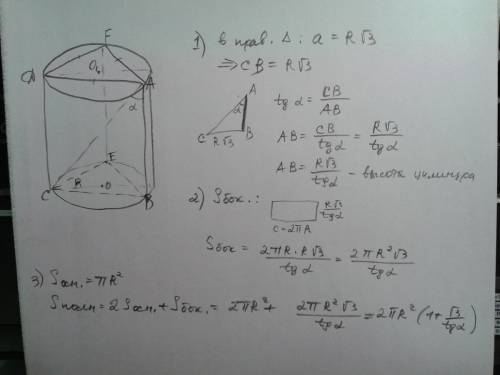 F
D O₁ A
α
E
C R O B
1) в прав. Δ: a = R√3
⇒ CB = R√3
A
α
C R√3 B
tg α = CB/AB
AB = CB/tg α = R√3/tg α
AB = R√3/tg α – высота цилиндра
2) Sбок.:
R√3/tg α
C = 2πR
Sбок = 2πR · R√3/tg α = 2πR²√3/tg α
3) Sосн. = πR²
Sполн = 2Sосн. + Sбок. = 2πR² + 2πR²√3/tg α = 2πR² (1 + √3/tg α)